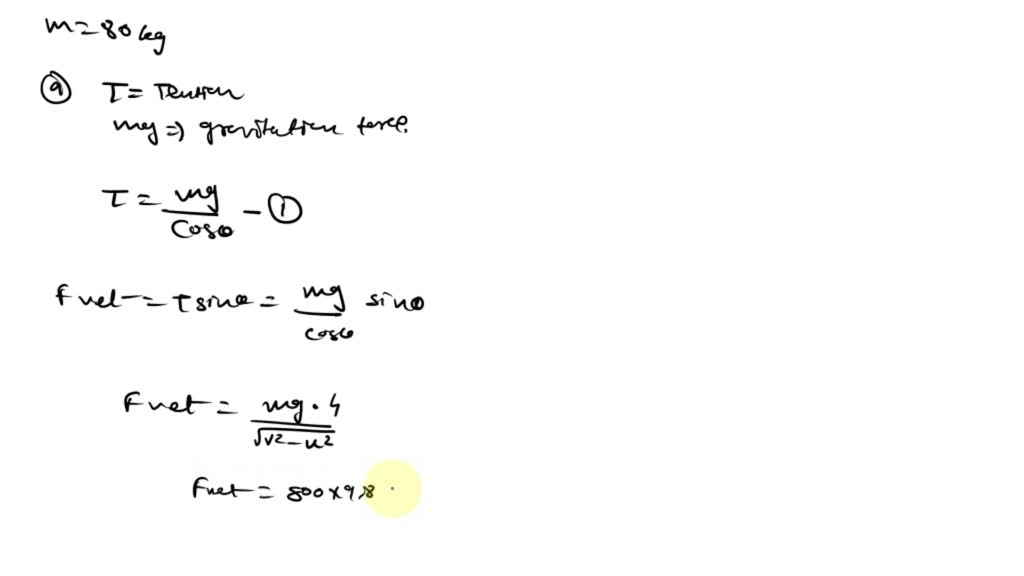 m = 80 kg
ⓐ T = Tention
mg ⇒ gravitation force.
T = mg / cosθ - ①
Fnet = T sinθ = mg / cosθ sinθ
Fnet = mg · 4 / √v² - u²
Fnet = 800 × 9.8